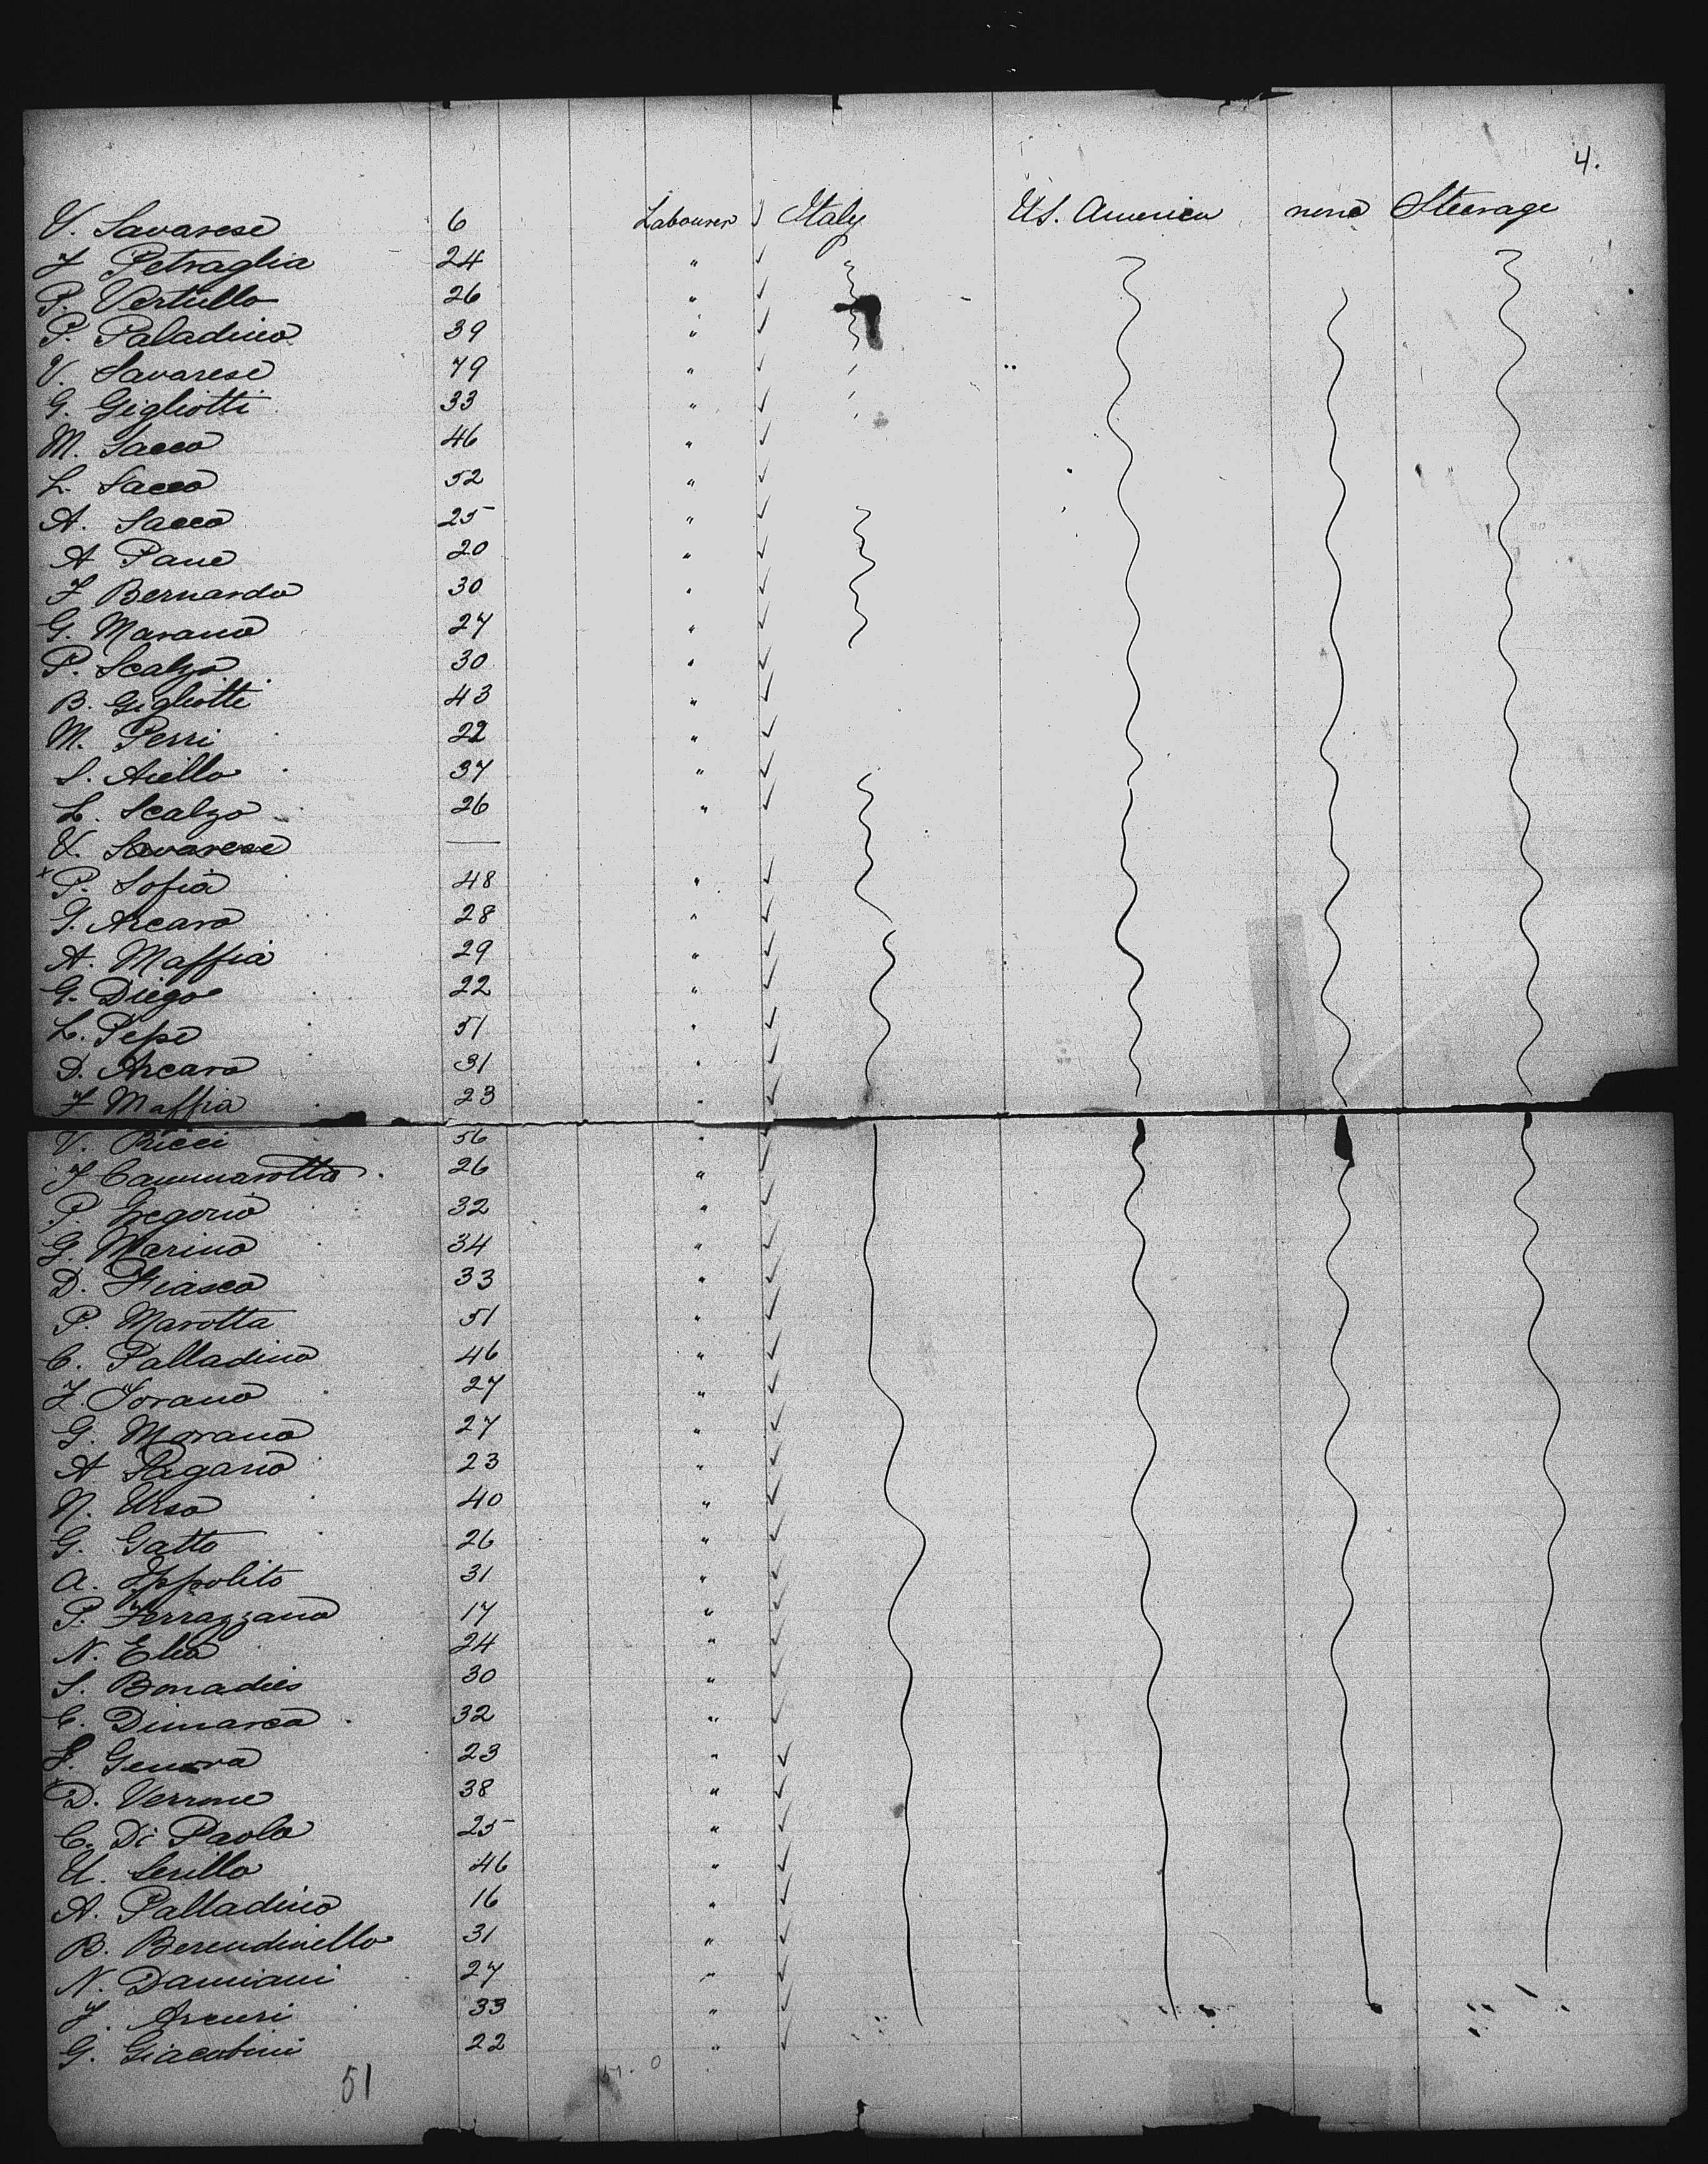 4.
V. Savarese 6 Labourer ✓ Italy U.S. America none Steerage
F Petraglia 24 " ✓
P. Vertullo 26 " ✓
P. Paladino 39 " ✓
V. Savarese 79 " ✓
G. Gigliotti 33 " ✓
M. Sacco 46 " ✓
L. Sacco 52 " ✓
A. Sacco 25 " ✓
A Pane 20 " ✓
F Bernardo 30 " ✓
G. Marano 27 " ✓
P. Scalzo 30 " ✓
B. Gigliotti 43 " ✓
M. Perri 22 " ✓
S. Aiello 37 " ✓
L. Scalzo 26 " ✓
V. Savarese —
x P. Sofia 48 " ✓
G. Arcaro 28 " ✓
A. Maffia 29 " ✓
G. Diego 22 " ✓
L. Pepe 51 " ✓
D. Arcaro 31 " ✓
F Maffia 23 " ✓
V. Ricci 56 " ✓
F Cammarotta 26 " ✓
P. Gregorio 32 " ✓
G. Marino 34 " ✓
D. Fiasco 33 " ✓
P. Marotta 51 " ✓
C. Palladino 46 " ✓
F. Iorano 27 " ✓
G. Morano 27 " ✓
A Pagano 23 " ✓
N. Urso 40 " ✓
G. Gatto 26 " ✓
A. Ippolito 31 " ✓
P. Ferrazzano 17 " ✓
N. Elia 24 " ✓
S. Bonadies 30 " ✓
C. Dimarco 32 " ✓
S. Genova 23 " ✓
D. Verrone 38 " ✓
C. Di Paolo 25 " ✓
U. Serillo 46 " ✓
A. Palladino 16 " ✓
B. Berendinello 31 " ✓
N. Damiani 27 " ✓
F. Arcuri 33 " ✓
G. Giacobini 22 " ✓
51